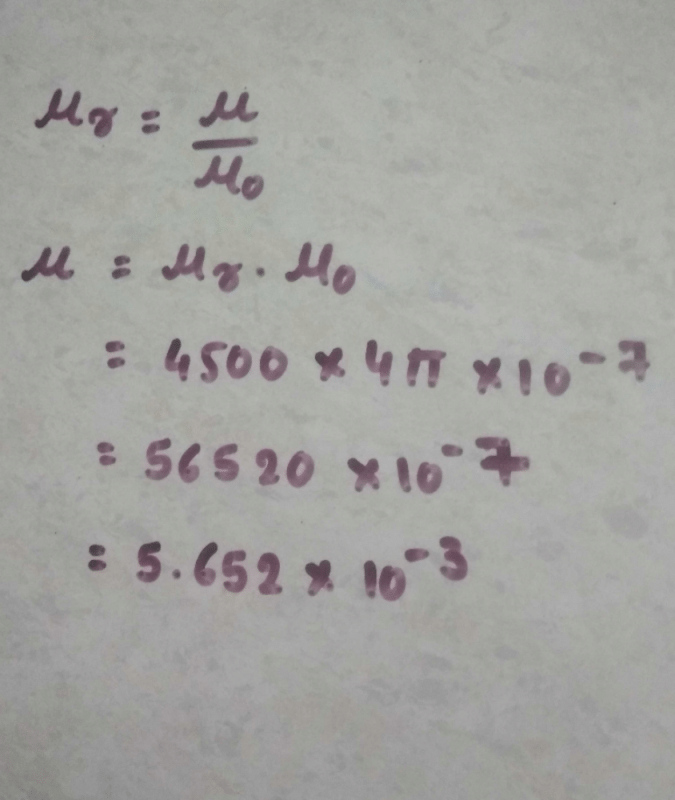 μr = μ/μ0
μ = μr . μ0
= 4500 × 4π × 10^-7
= 56520 × 10^-7
= 5.652 × 10^-3